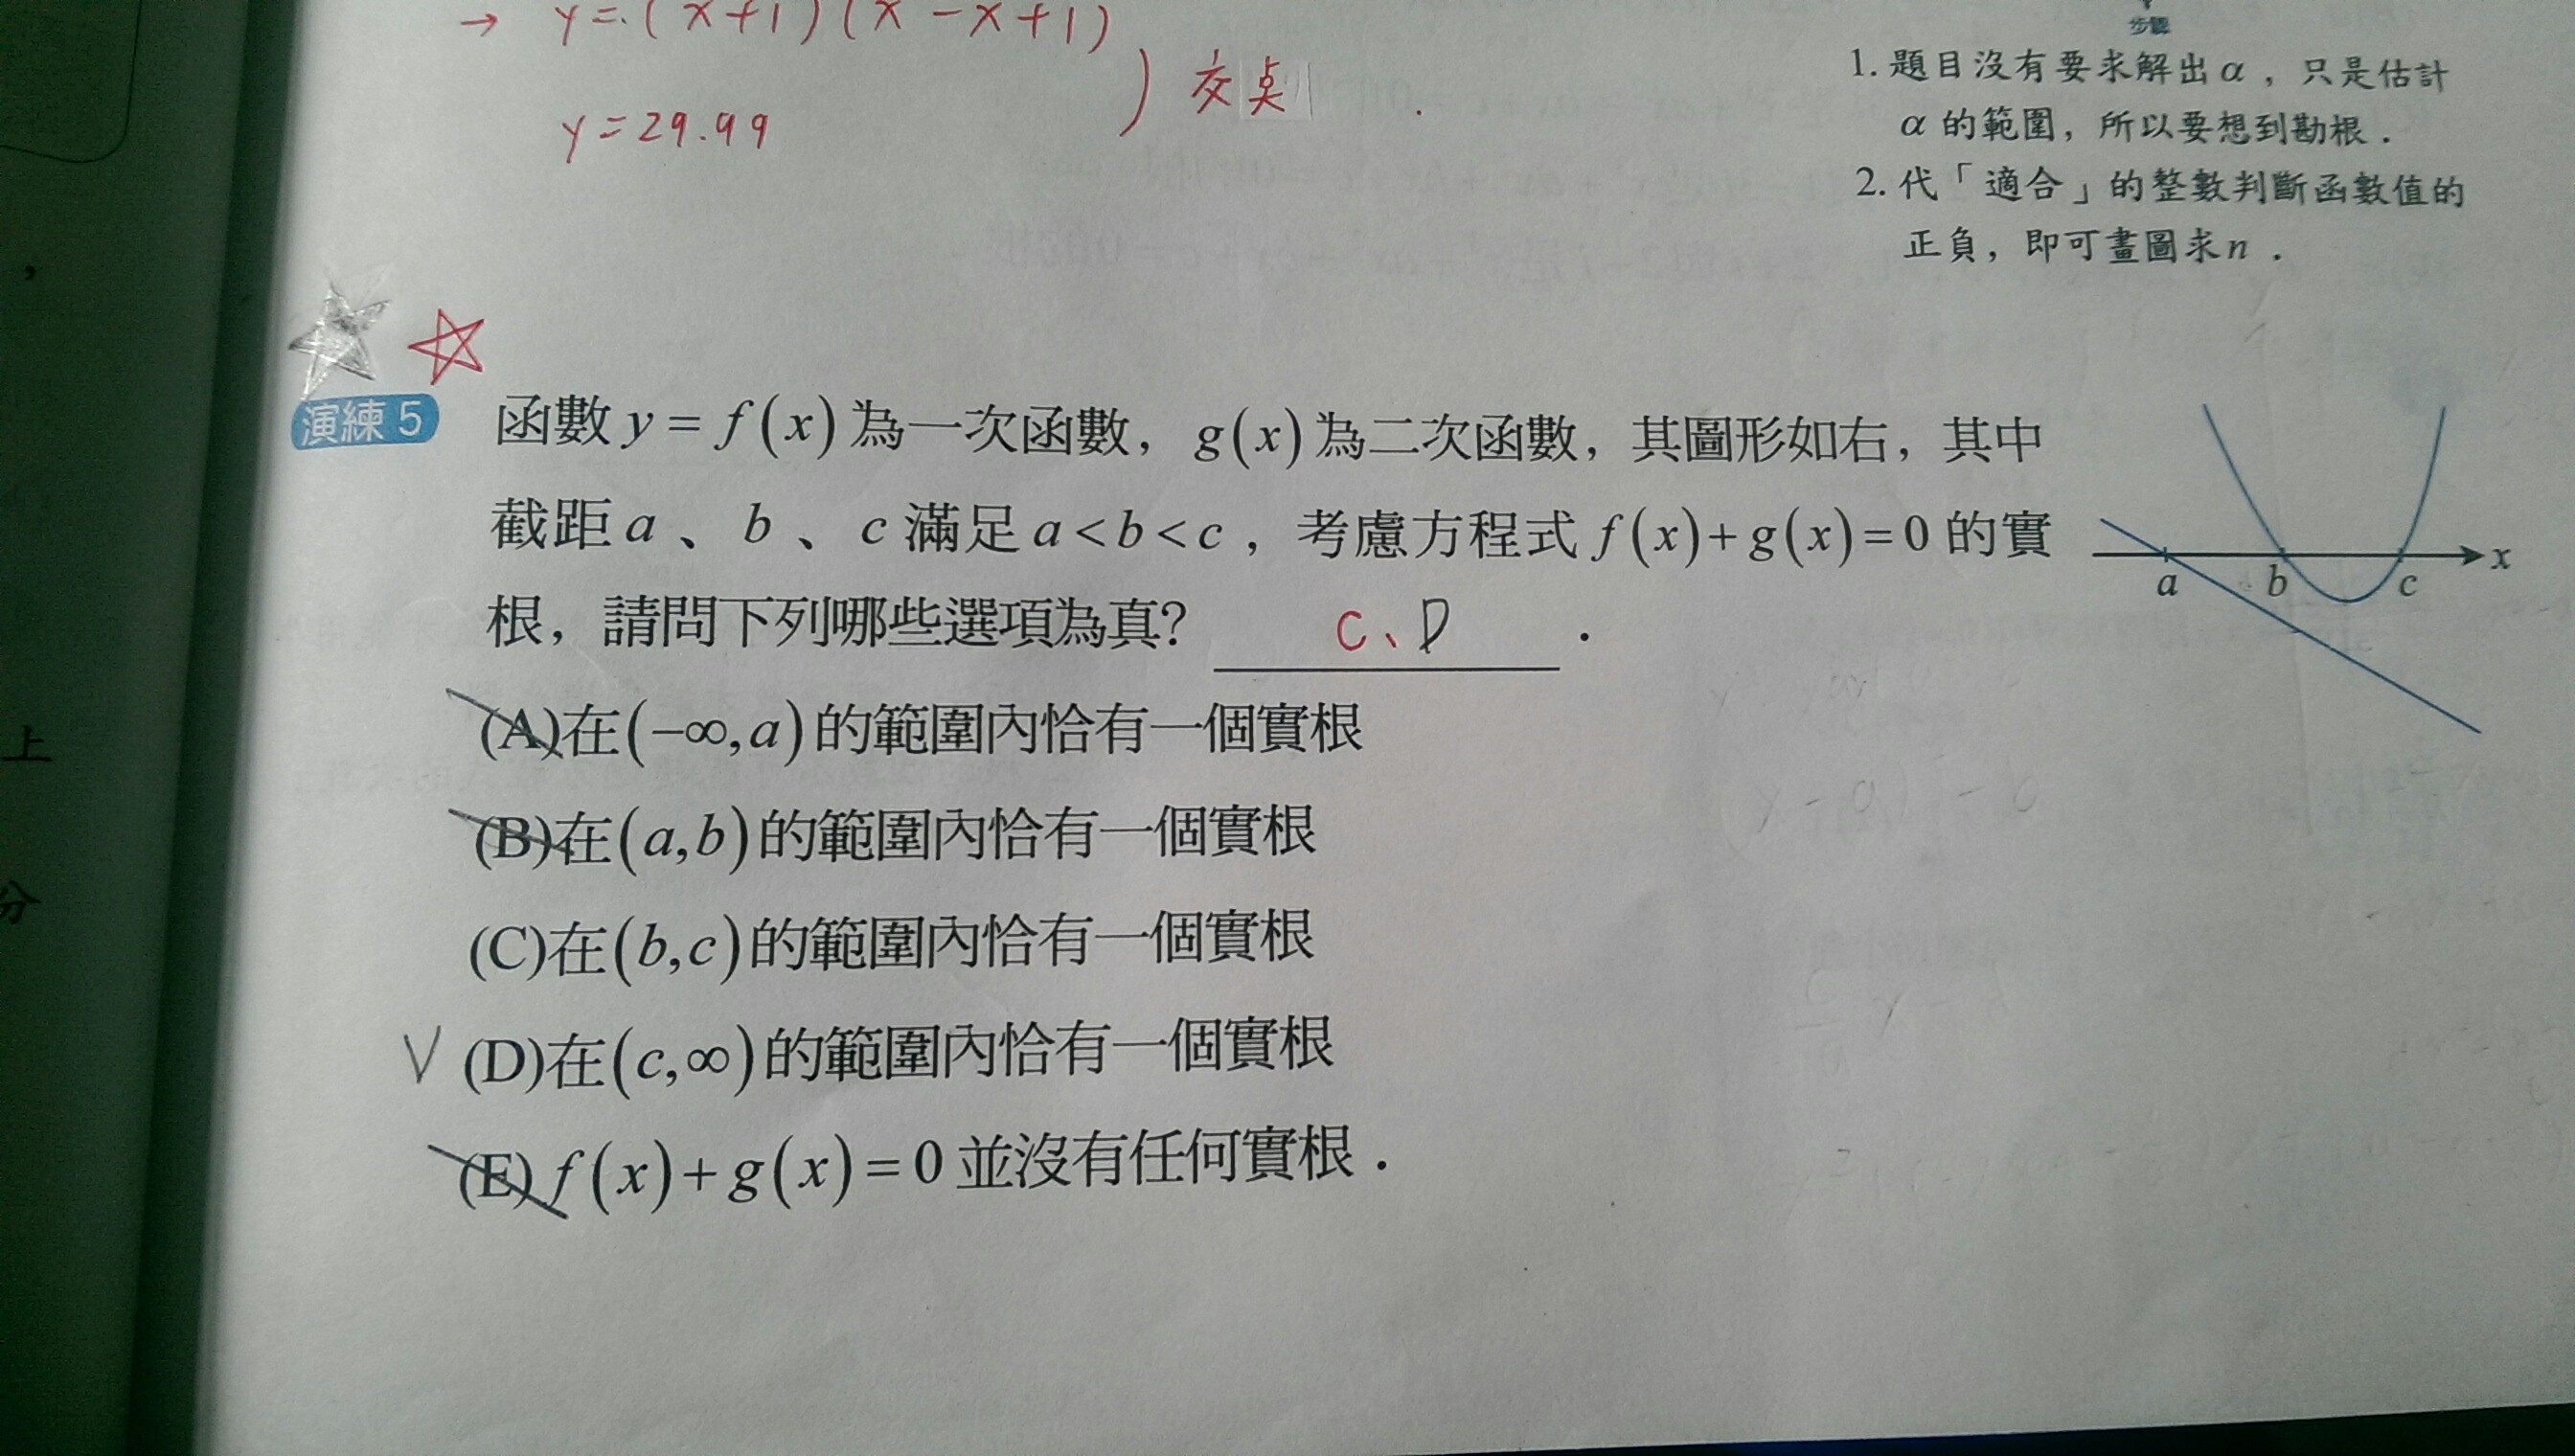 → y=(x+1)(x-x+1)
) 交桌
y=29.99
步驟
1. 題目沒有要求解出α，只是估計
α的範圍，所以要想到勘根．
2. 代「適合」的整數判斷函數值的
正負，即可畫圖求n．
演練5 函數y=f(x)為一次函數，g(x)為二次函數，其圖形如右，其中
截距a、b、c滿足a<b<c，考慮方程式f(x)+g(x)=0的實
根，請問下列哪些選項為真？ C、D ．
a b c x
(A)在(-∞,a)的範圍內恰有一個實根
(B)在(a,b)的範圍內恰有一個實根
(C)在(b,c)的範圍內恰有一個實根
V (D)在(c,∞)的範圍內恰有一個實根
(E) f(x)+g(x)=0並沒有任何實根．
，
上
分